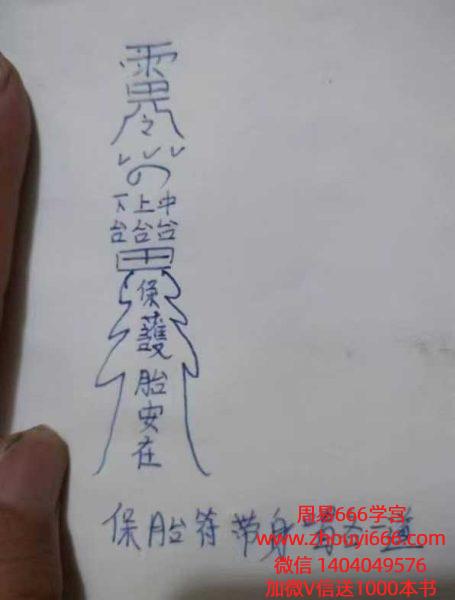 下 上 中
台 台 台
保
護
胎
安
在
保胎符带身
周易666学宫
www.zhouyi666.com
微信 1404049576
加微V信送1000本书